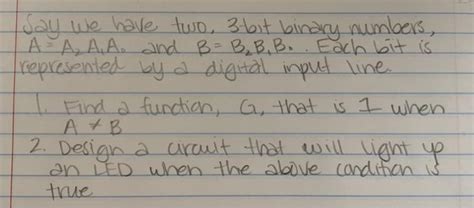 Say we have two, 3-bit binary numbers,
A = A₂A₁A₀ and B = B₂B₁B₀. Each bit is
represented by a digital input line.
1. Find a function, G, that is 1 when
A ≠ B
2. Design a circuit that will light up
an LED when the above condition is
true